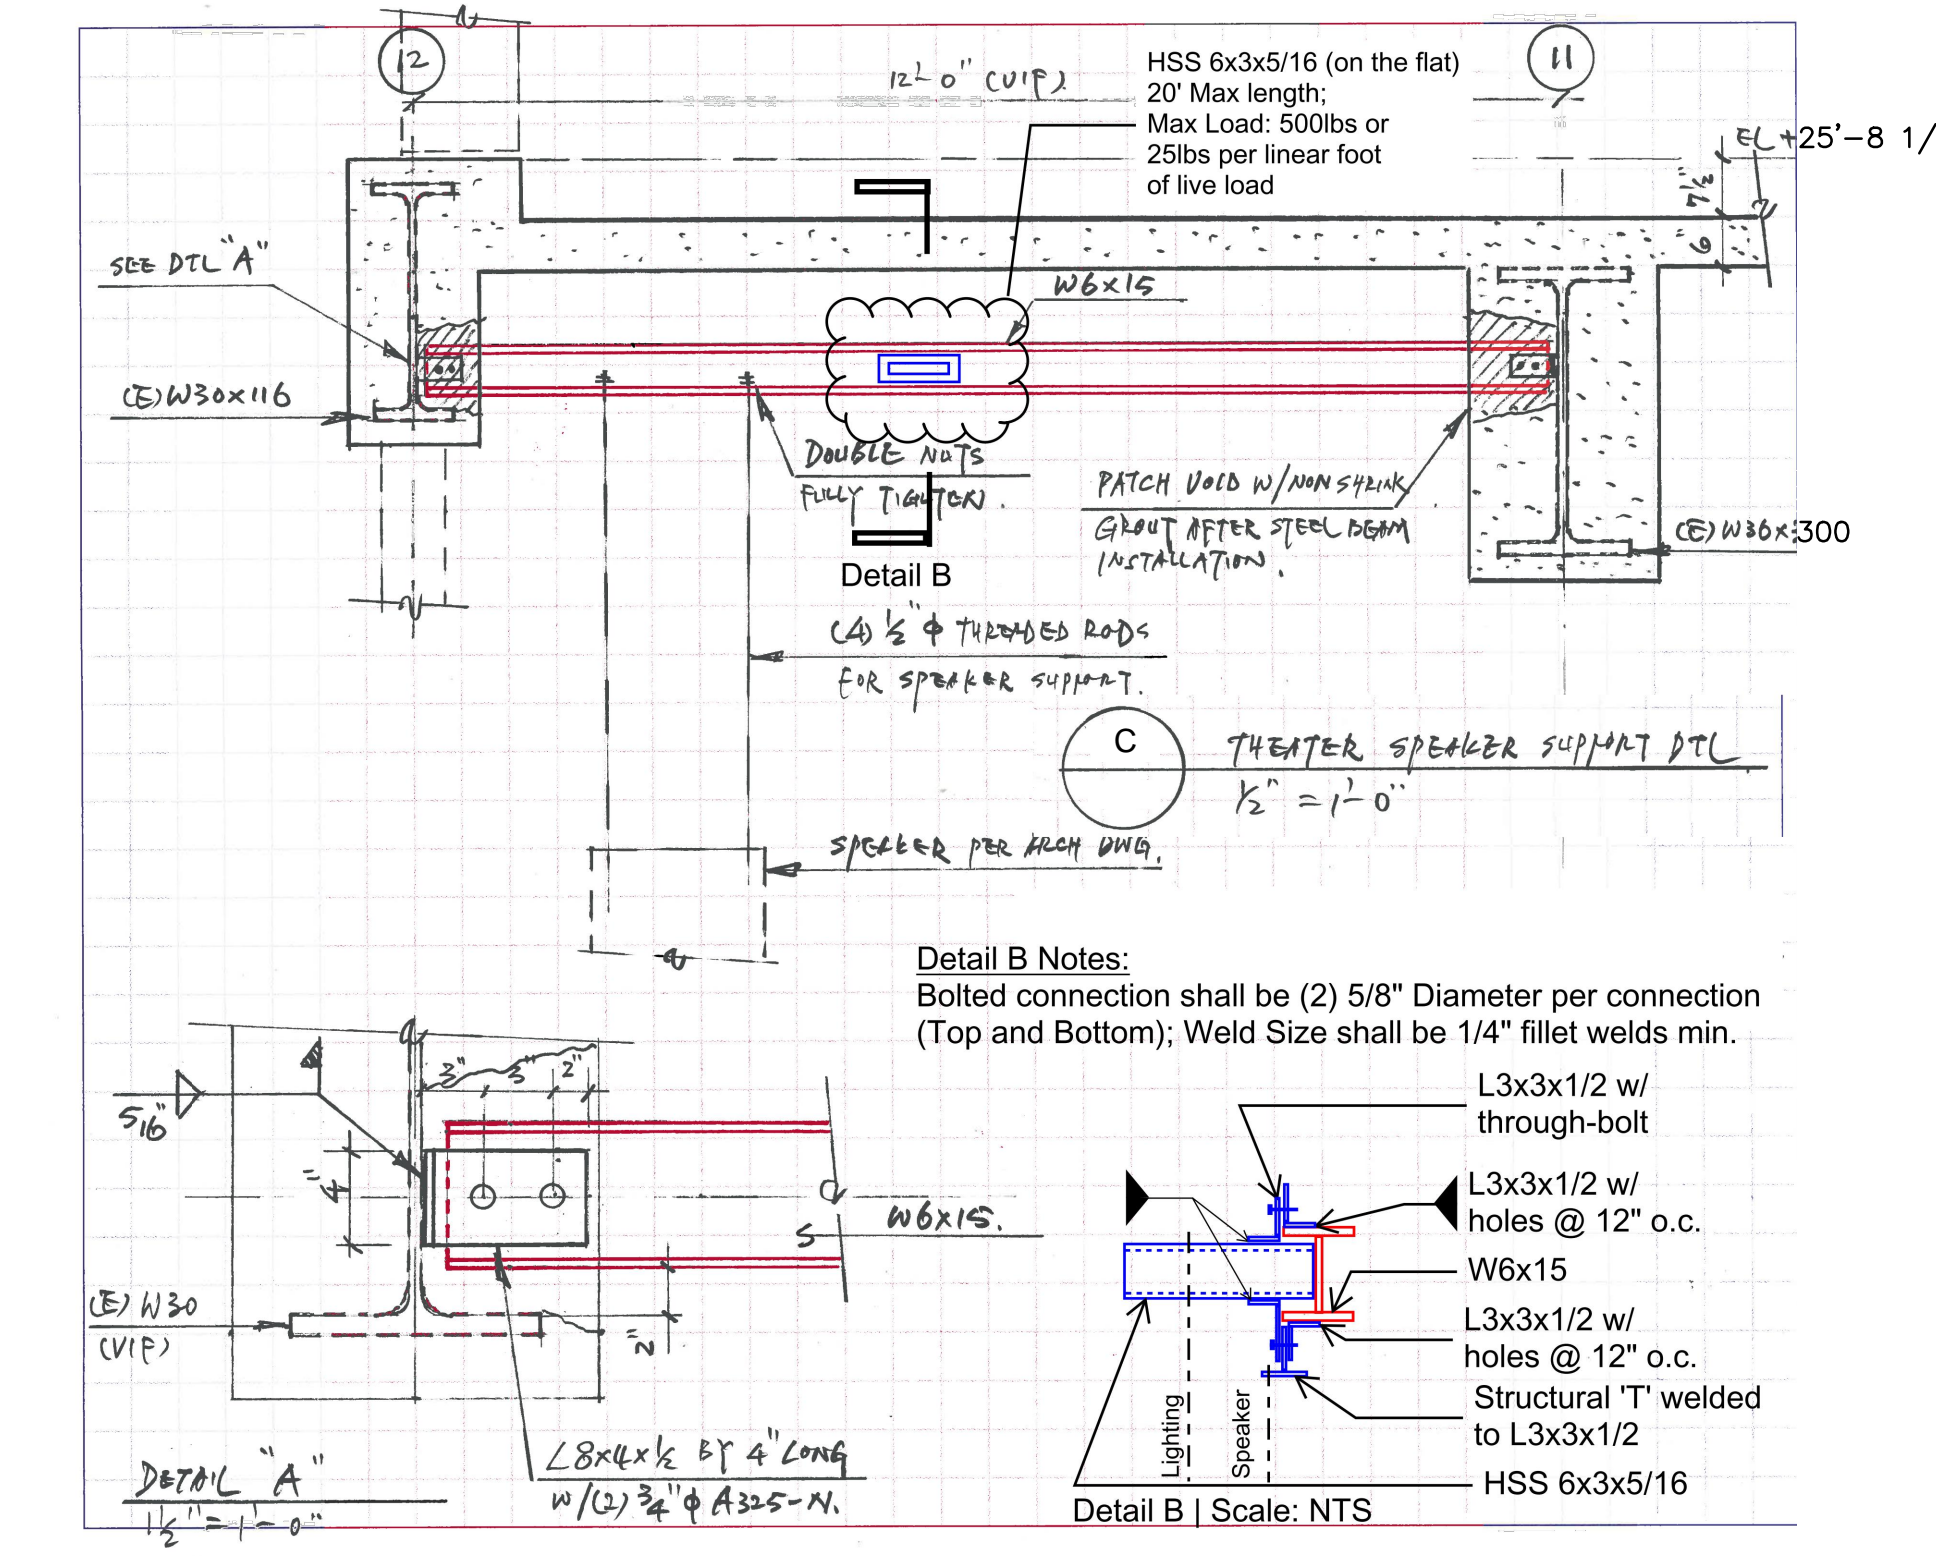 12
12'-0" (VIF).
HSS 6x3x5/16 (on the flat)
20' Max length;
Max Load: 500lbs or
25lbs per linear foot
of live load
11
EL +25'-8 1/
7½"
6"
SEE DTL "A"
W6x15
(E) W30x116
DOUBLE NUTS
FULLY TIGHTEN.
PATCH VOID W/NON SHRINK
GROUT AFTER STEEL BEAM
INSTALLATION.
(E) W36x300
Detail B
(4) ½" ϕ THREADED RODS
FOR SPEAKER SUPPORT.
C
THEATER SPEAKER SUPPORT DTL
½" = 1'-0"
SPEAKER PER ARCH DWG.
Detail B Notes:
Bolted connection shall be (2) 5/8" Diameter per connection
(Top and Bottom); Weld Size shall be 1/4" fillet welds min.
3" 3" 2"
5/16"
4"
W6x15.
(E) W30
(VIF)
2"
L8x4x½ BY 4" LONG
W/(2) ¾" ϕ A325-N.
DETAIL "A"
1½" = 1'-0"
L3x3x1/2 w/
through-bolt
L3x3x1/2 w/
holes @ 12" o.c.
W6x15
L3x3x1/2 w/
holes @ 12" o.c.
Structural 'T' welded
to L3x3x1/2
HSS 6x3x5/16
Lighting
Speaker
Detail B | Scale: NTS